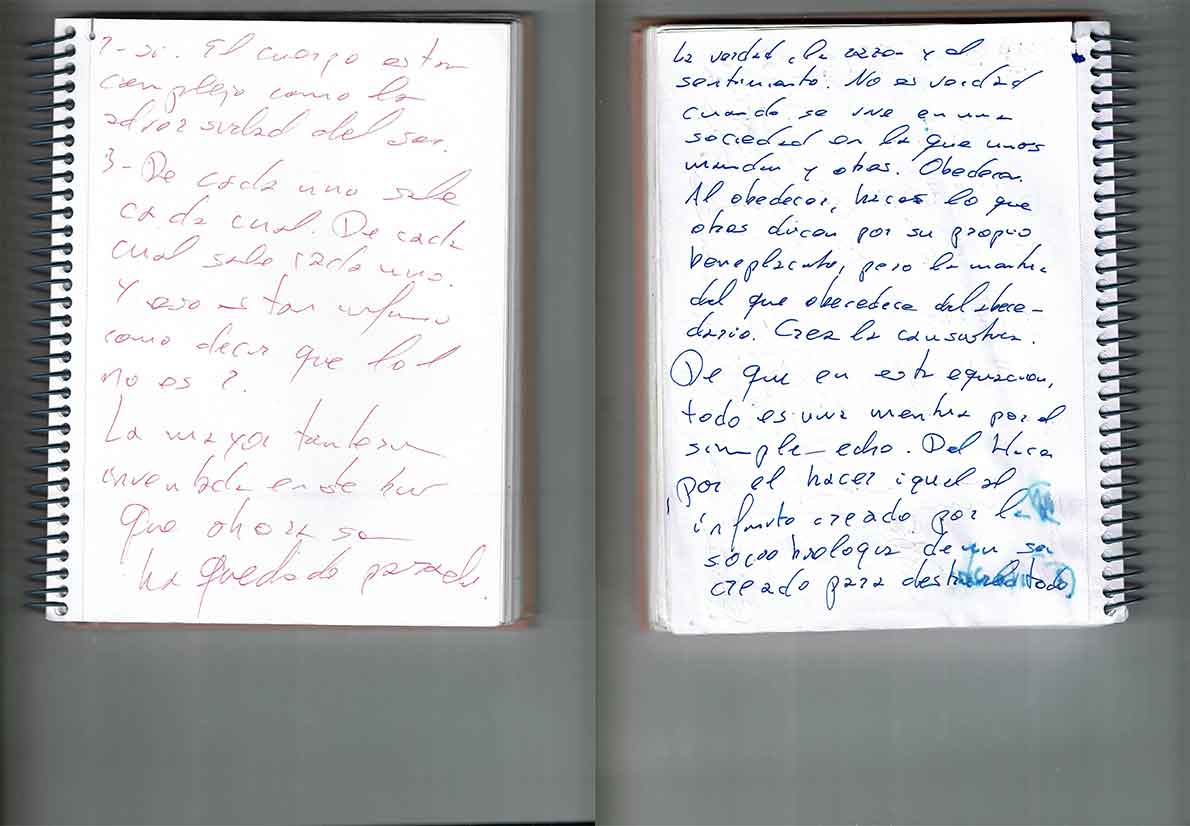 ? - si. El cuerpo es tan
complejo como la
del ser.
3 - De cada uno sale
cada cual. De cada
cual sale cada uno.
Y eso es tan
como decir que
no es ?
La mayor
inventada
que ahora se
ha quedado parada.
La verdad, la razon y el
sentimiento. No es verdad
cuando se vive en una
sociedad en la que unos
mandan y otros. Obedecen.
Al obedecer, haces lo que
otros dicen por su propio
beneplacito, pero la mentira
del que obecedece del abece-
dario. Crea la
De que en esta equacion,
todo es una mentira por el
simple echo. Del
por el hacer igual al
infinito creado por la
sociobiologia de un ser
creado para todo